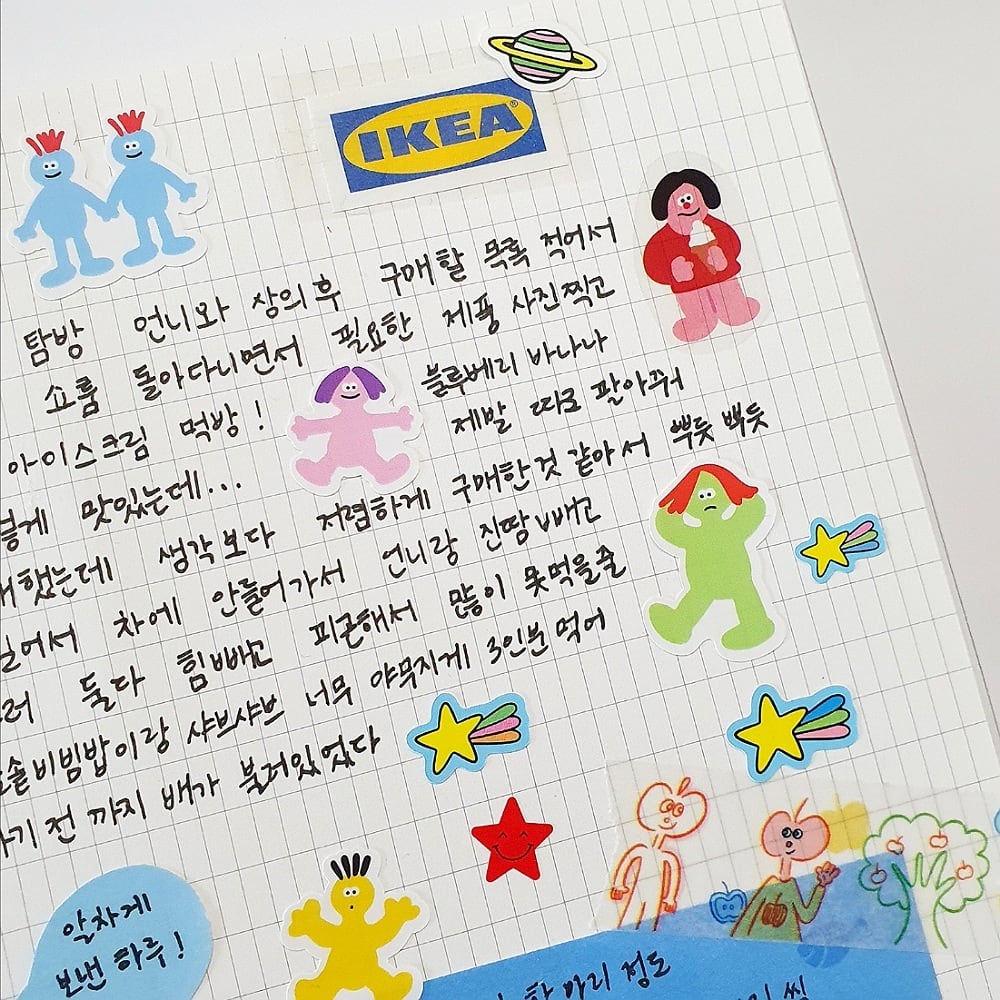 IKEA®
탐방 언니와 상의후 구매할 목록 적어서
쇼룸 돌아다니면서 필요한 제품 사진찍고
아이스크림 먹방! 블루베리 바나나
맛있는데... 제발 따로 팔아줘
했는데 생각보다 저렴하게 구매한것 같아서 뿌듯 뿌듯
차에 안들어가서 언니랑 진땅빼고
둘다 힘빼고 피곤해서 많이 못먹을줄
솥비빔밥이랑 샤브샤브 너무 야무지게 3인분 먹어
전 까지 배가 불러있었다
알차게
보낸 하루!
한 마리 정도